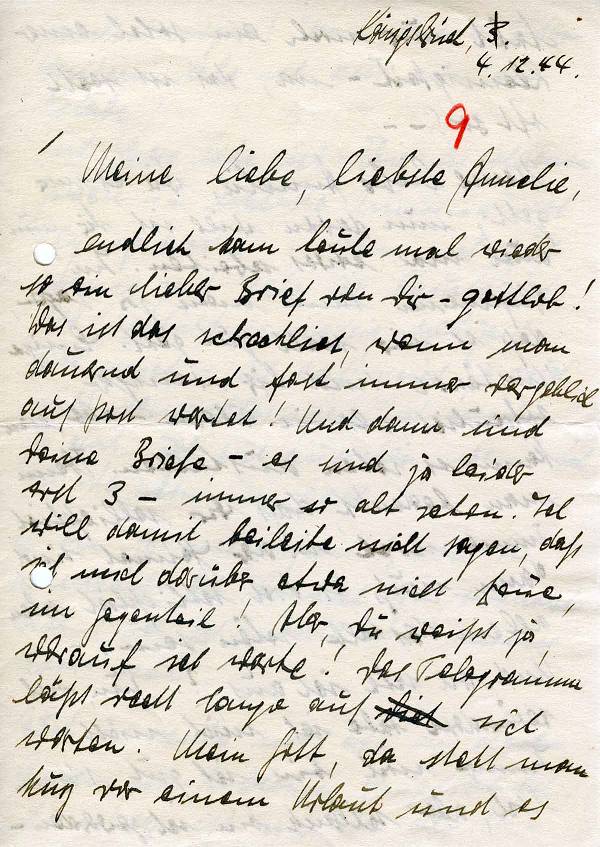 Königsbrück, 3.
4.12.44.
9
Meine liebe, liebste Annelie,
endlich kam heute mal wieder
so ein lieber Brief von Dir – gottlob!
Was ist das schrecklich, wenn man
dauernd und fast immer vergeblich
auf Post wartet! Und dann sind
Deine Briefe – es sind ja leider
erst 3 – immer so alt schon. Ich
will damit beileibe nicht sagen, daß
ich mich darüber etwa nicht freue,
im Gegenteil! Aber, Du weißt ja,
worauf ich warte! Das Telegramm
läßt recht lange auf sich
warten. Mein Gott, da steht man
kurz vor einem Urlaub und es